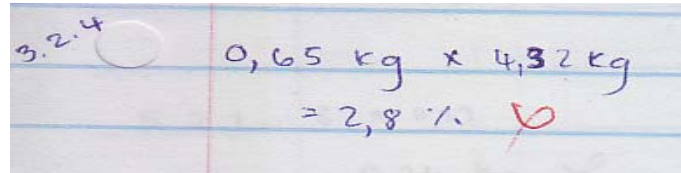 3.2.4 0,65 kg x 4,32 kg
= 2,8 %